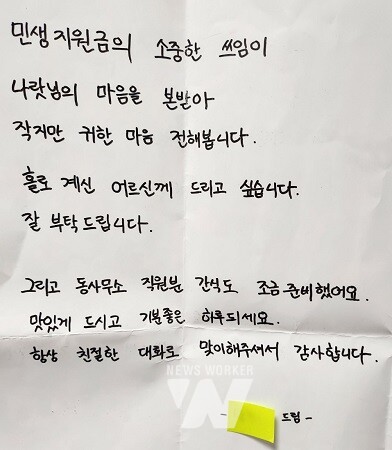 민생지원금의 소중한 쓰임이
나랏님의 마음을 본받아
작지만 귀한 마음 전해봅니다.
홀로 계신 어르신께 드리고 싶습니다.
잘 부탁드립니다.
그리고 동사무소 직원분 간식도 조금 준비했어요.
맛있게 드시고 기분좋은 하루되세요.
항상 친절한 대화로 맞이해주셔서 감사합니다.
NEWS WORKER
W
- 드림 -